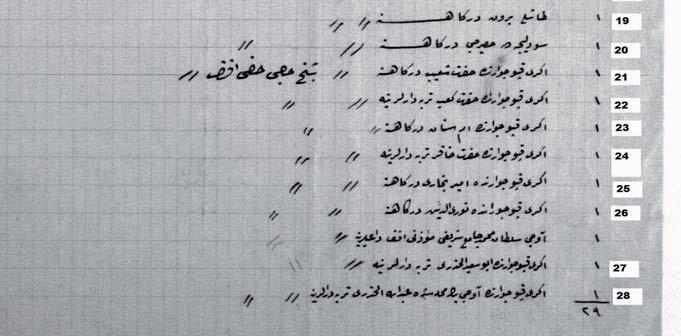 ١ طاشلى برون دركاهنه 〃 〃 19
١ سودليجه ده حصيرجى دركاهنه 〃 〃 20
١ اكرى قپو جوارنده حضرت شعيب دركاهنه 〃 شيخ حاجى حقى افندى 〃 21
١ اكرى قپو جوارنده حضرت كعب تربه دارلرينه 〃 〃 22
١ اكرى قپو جوارنده ام سنان دركاهنه 〃 〃 23
١ اكرى قپو جوارنده حضرت حافر تربه دارلرينه 〃 〃 24
١ اكرى قپو جوارنده امير بخارى دركاهنه 〃 〃 25
١ اكرى قپو جوارنده نورى الدين دركاهنه 〃 〃 26
١ آوجى سلطان محمد جامع شريفى مؤذنى افندى 〃 〃
١ اكرى قپو جوارنده ابو سعيد الخدرى تربه دارلرينه 〃 〃 27
١ اكرى قپو جوارنده آوجى محله سنده عبدالله الخدرى تربه دارلرينه 〃 〃 28
٢٩